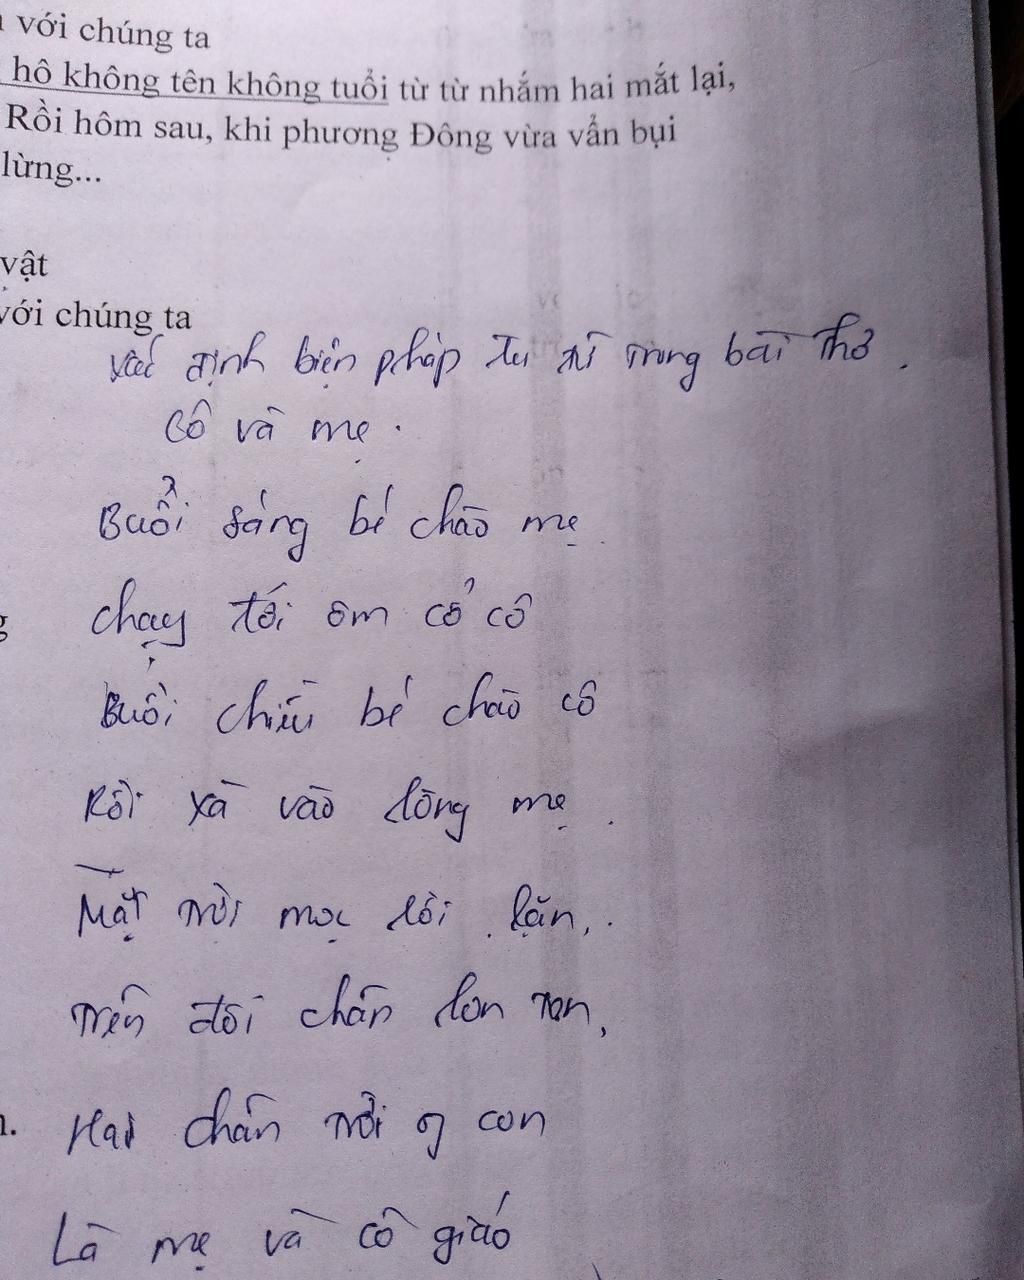 với chúng ta
hô không tên không tuổi từ từ nhắm hai mắt lại,
Rồi hôm sau, khi phương Đông vừa vẩn bụi
lừng...
vật
với chúng ta
xác định biện pháp tu từ trong bài thơ.
Cô và mẹ.
Buổi sáng bé chào mẹ
chạy tới ôm cổ cô
Buổi chiều bé chào cô
Rồi xà vào lòng mẹ.
Mặt trời mọc rồi lặn,.
Trên đôi chân lon ton,
Hai chân trời of con
Là mẹ và cô giáo